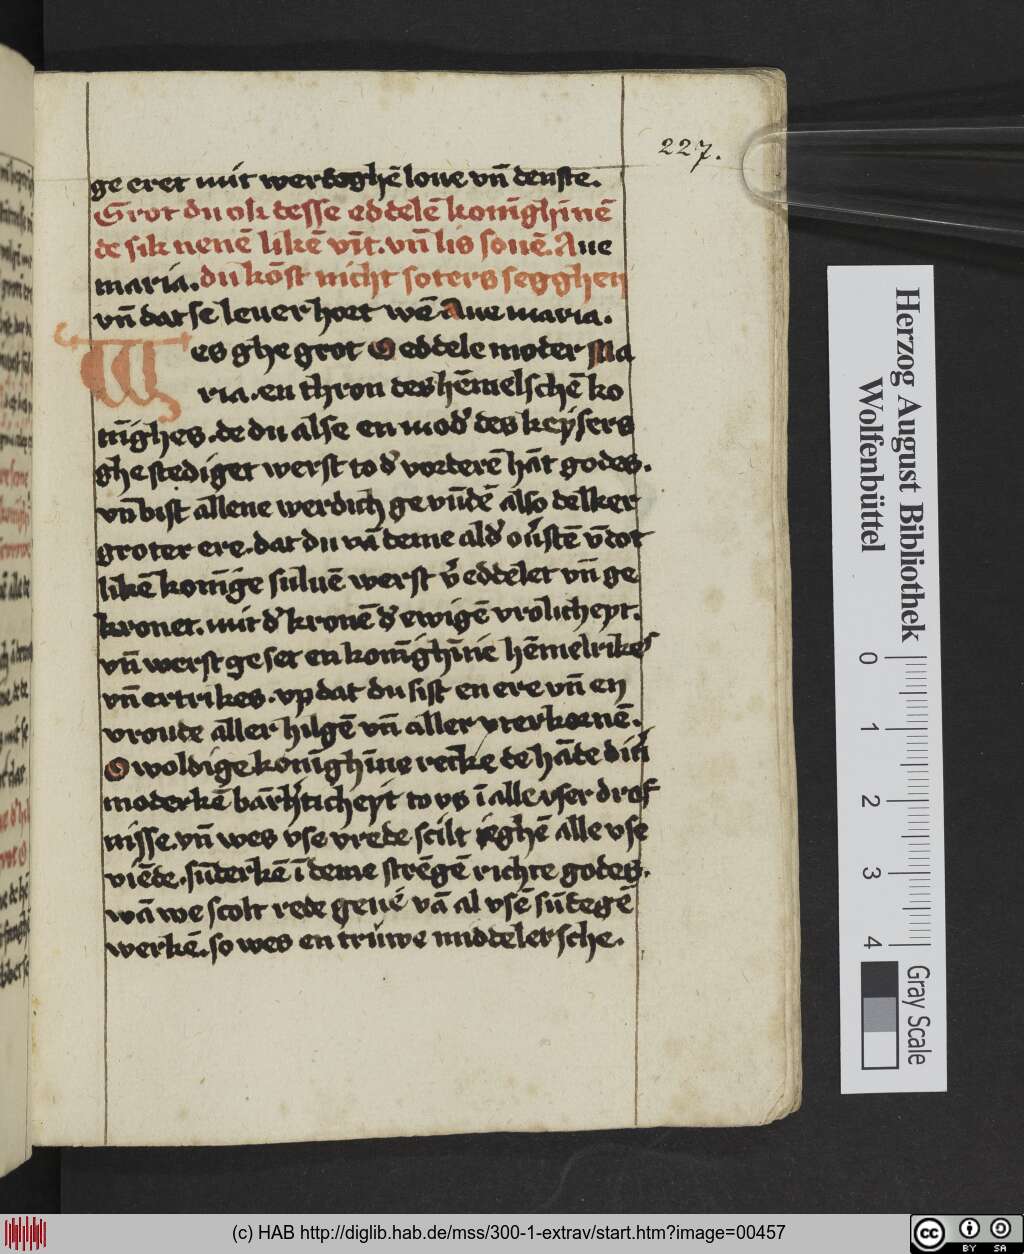 227.
ge eret mit werdoghē loue vn̄ denste.
Grot du ok desse eddelē konīghīnē
de sik nenē likē vīt. vn̄ lis sonē. Aue
maria. du kōst nicht soters segghen
vn̄ dat se leuer hoet wē Aue maria.
Wes ghe grot O eddele moder Ma
ria. en thron des hēmelschē ko
nīghes. de du alse en mod' des keysers
ghestediget werst to d' vorderē hāt godes.
vn̄ bist allene werdich ge vūdē also delker
groter ere. dat du vā deme ald' ou'stē v̄dot
likē konīge suluē werst v'eddelet vn̄ ge
kronet. mit d' kronē d' ewigē vrolicheyt.
vn̄ werst ge set en konīghīne hēmelrikes
vn̄ ertrikes. vp dat du sist en ere vn̄ en
vroude aller hilgē vn̄ aller vterkornē.
O woldige konīghīne recke de hāde din'
moderkē bārh'ticheyt to vs ī alle vser drof
nisse. vn̄ wes vse vrede scilt ieghē alle vse
viēde. sūderkē ī deme strēgē richte godes.
wā we scolt rede geuē vā al vsē sūdegē
werkē. so wes en truwe middelersche.
Herzog August Bibliothek
Wolfenbüttel
0 1 2 3 4
Gray Scale
(c) HAB http://diglib.hab.de/mss/300-1-extrav/start.htm?image=00457
cc BY SA